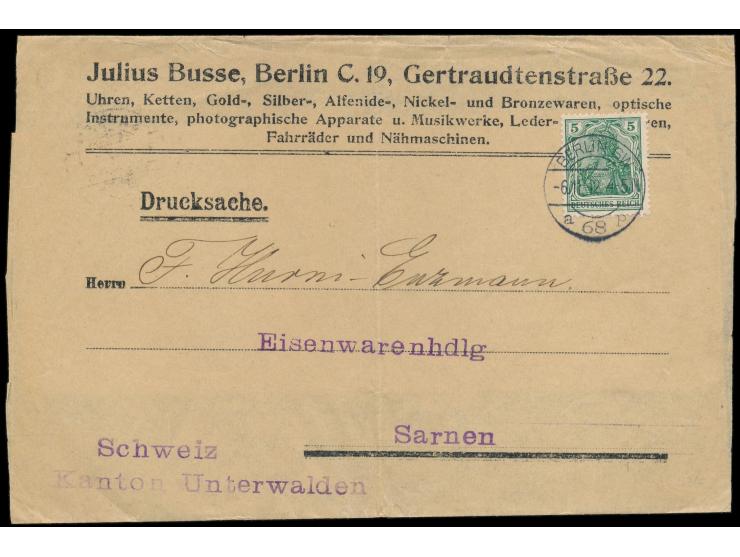 Julius Busse, Berlin C. 19, Gertraudtenstraße 22.
Uhren, Ketten, Gold-, Silber-, Alfenide-, Nickel- und Bronzewaren, optische
Instrumente, photographische Apparate u. Musikwerke, Leder-
Fahrräder und Nähmaschinen.
5 5
DEUTSCHES REICH
BERLIN SW
a 68 p
Drucksache.
Herrn F. Hurni-Enzmann.
Eisenwarenhdlg
Sarnen
Schweiz
Kanton Unterwalden